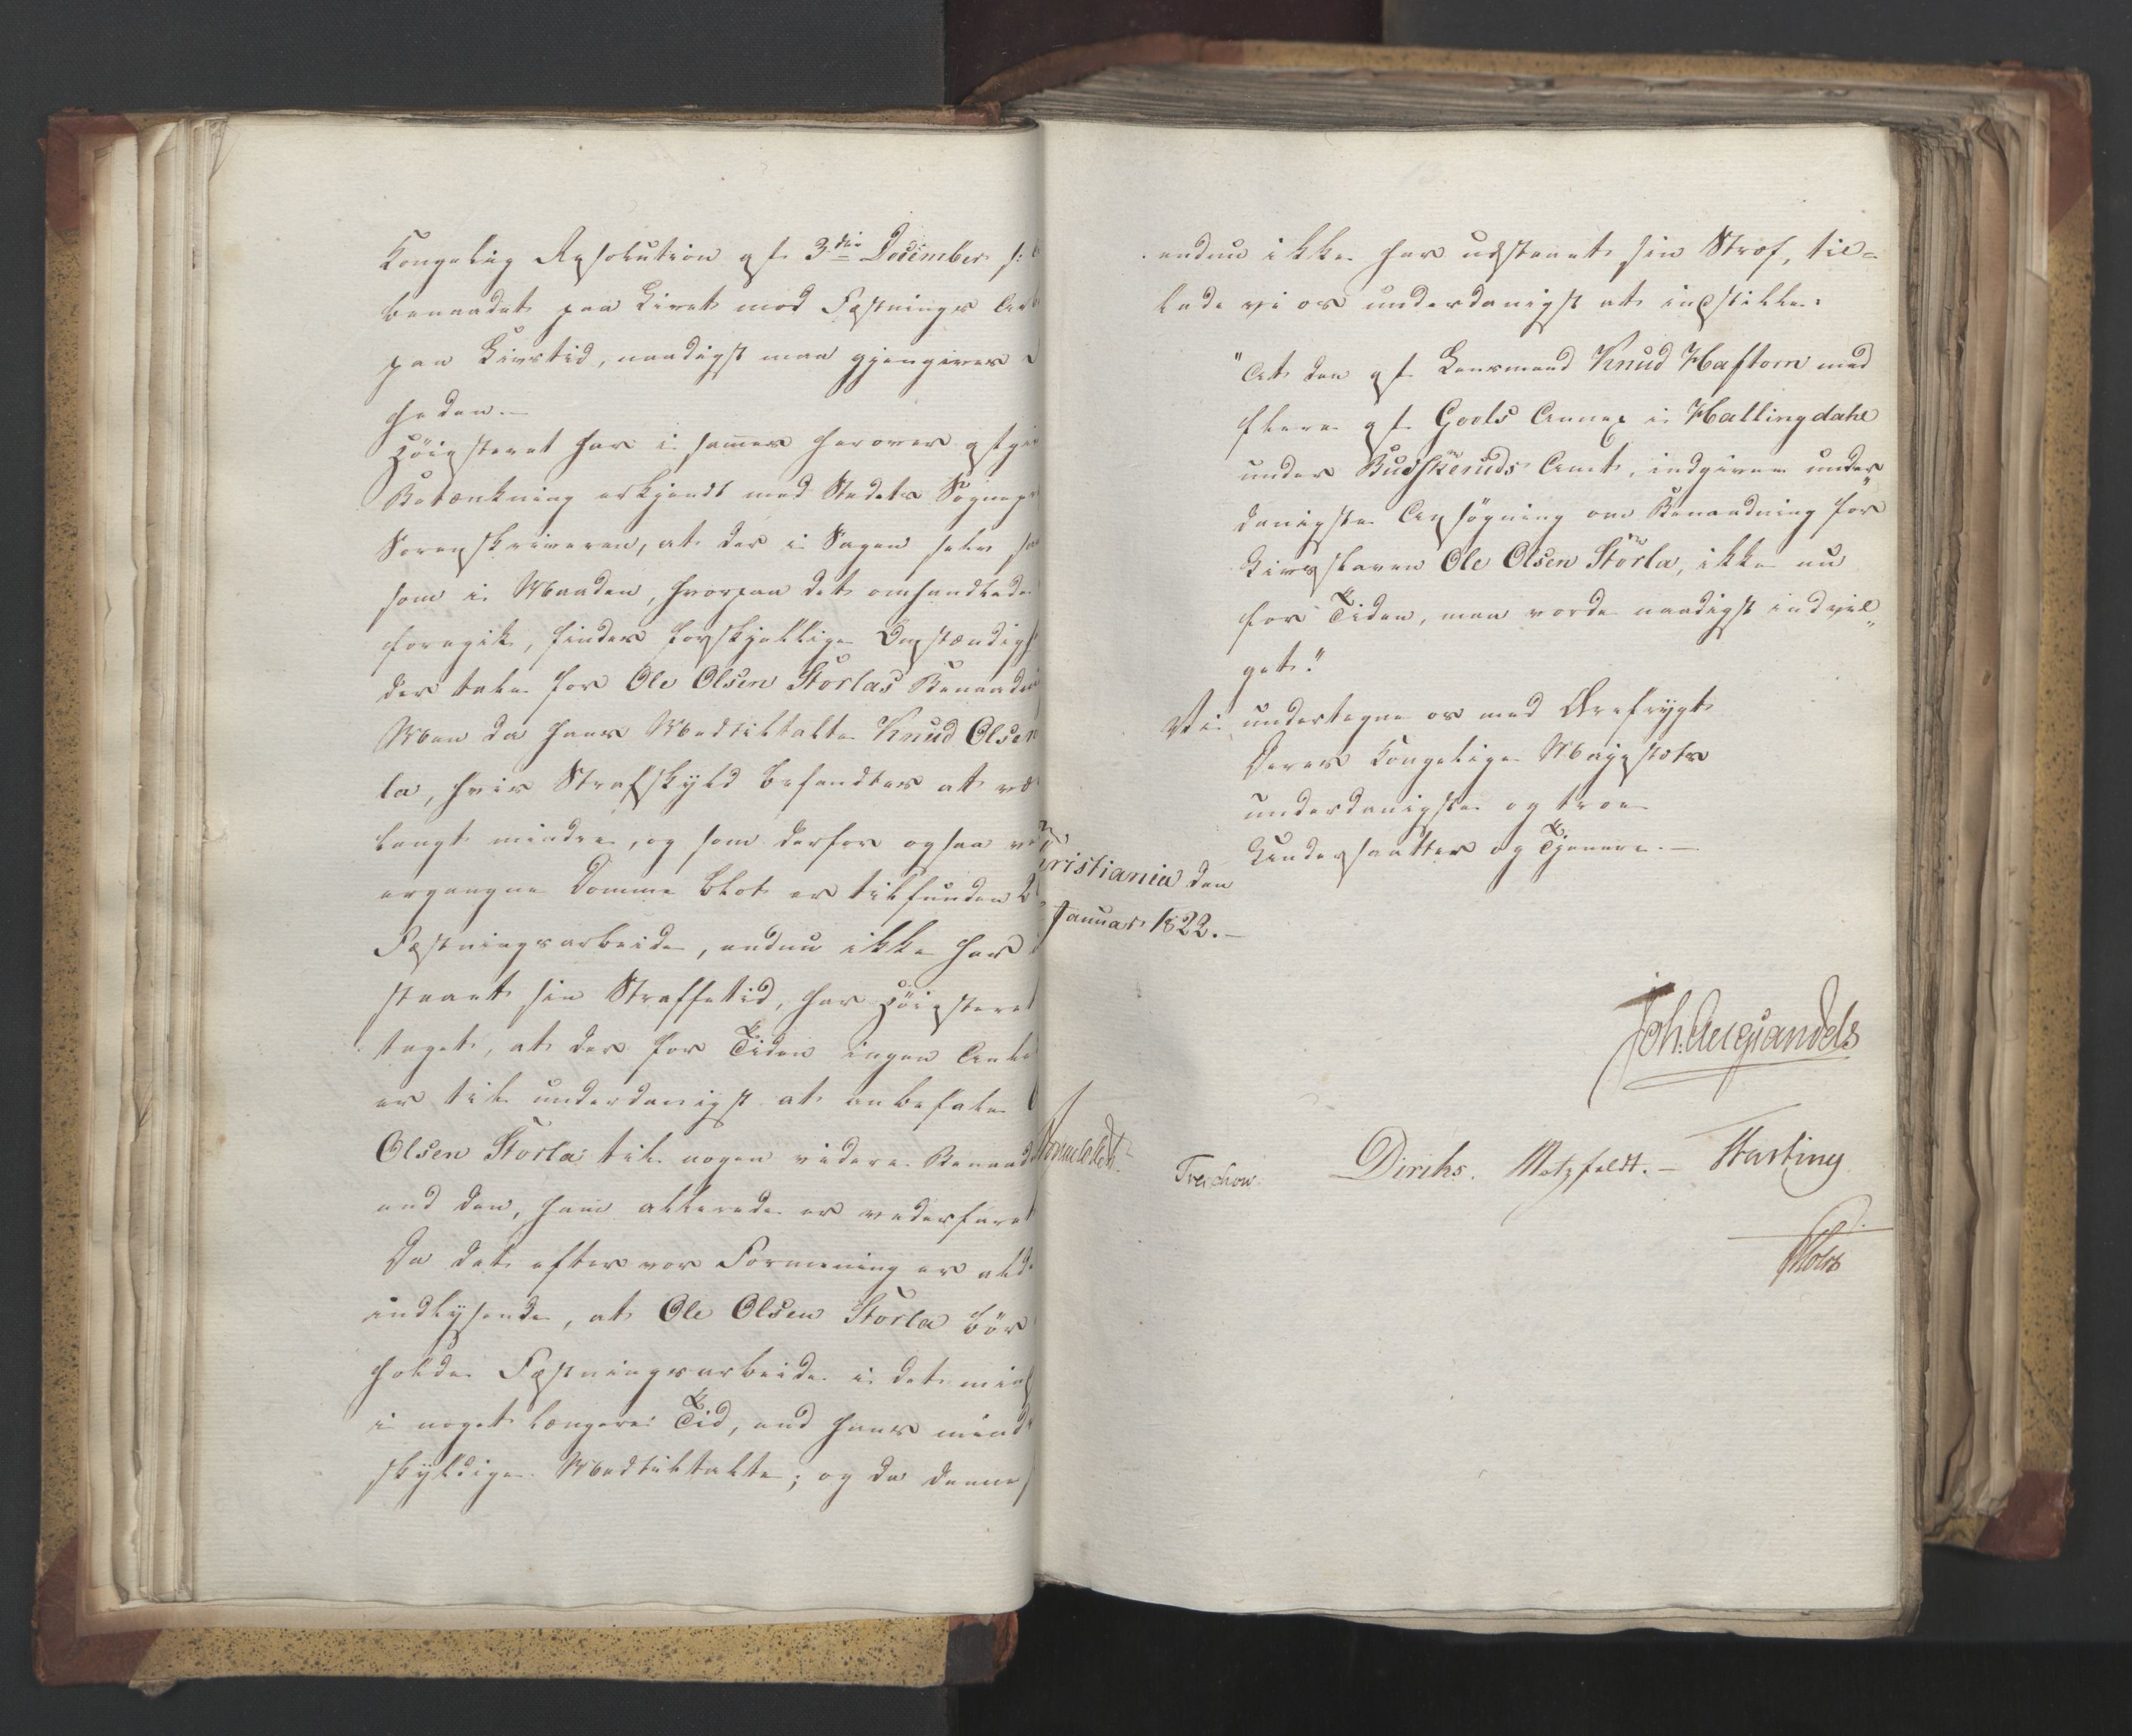 Kongelig Resolution af 3die December f:
benaadet paa Livet mod Fæstnings Arb
paa Livstid, naadigst maa gjengives
heden.
Høiesteret har i sin herover afgi
Betænkning erkjendt med Stedets Sognepr
Sorenskriveren, at der i Sagen selv sa
som i Maaden, hvorpaa det omhandlede
foregik, findes forskjellige Omstændigh
der tale for Ole Olsen Storlas Benaadni
Men da hans Medtiltalte Knud Olsen
la, hvis Strafskyld befandtes at væ
langt mindre, og som derfor ogsaa ve
ergangne Domme blot er tilfunden 2
Fæstningsarbeide, endnu ikke har
staaet sin Straffetid, har Høiesteret
taget, at der for Tiden ingen Anle
er til underdanigst at anbefale O
Olsen Storla til nogen videre Benaad
end den, ham allerede er vederfaret
Da det efter vor Formening er alde
indlysende, at Ole Olsen Storla bør
holde Fæstningsarbeide i det mind
i noget længere Tid, end hans mind
skyldige Medtiltalte; og da denne
endnu ikke har udstaaet sin Straf, til-
lade vi os underdanigst at indstille:
"At den af Lensmand Knud Haftorn med
flere af Gols Annex i Hallingdahl
under Budskeruds Amt, indgivne under„
danigste Ansøgning om Benaadning for
Livsslaven Ole Olsen Storla, ikke nu
for Tiden, maa vorde naadigst indvil„
get."
Vi undertegne os med Ærefrygt
Deres Kongelige Majestæts
underdanigste og troe
Undersaatter og Tjenere.—
ristiania den
Januar 1822.—
Sommelhielm
Treschow. Diriks. Motzfeldt.— Fasting
Holst